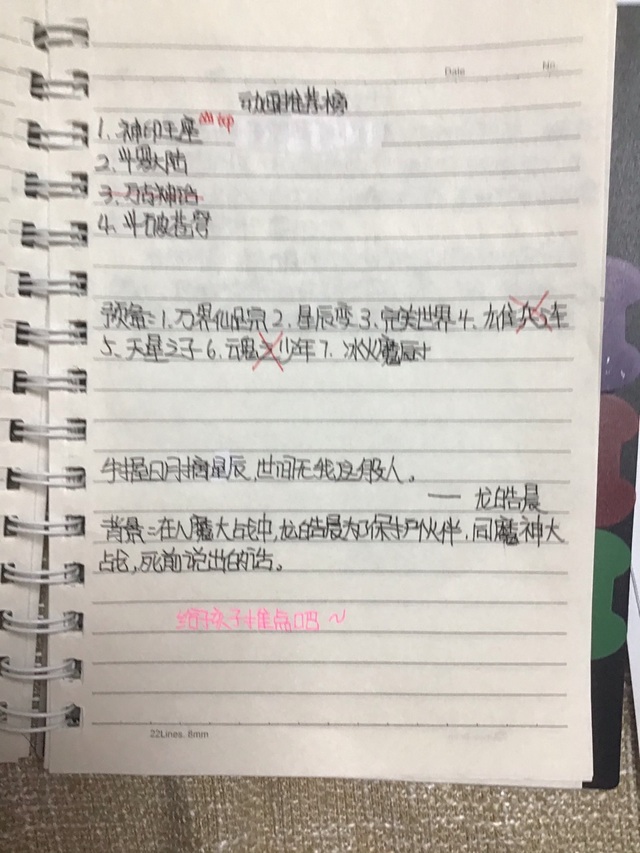 Date No.
动画推荐榜
1、神印王座 top
2、斗罗大陆
3、万古神话
4、斗破苍穹
预备：1、万界仙踪 2、星辰变 3、完美世界 4、
5、天星之子 6、魂 少年 7、冰火魔厨
手握日月摘星辰，世间无我这般人。
—— 龙皓晨
背景：在人魔大战中，龙皓晨为了保护伙伴，同魔神大
战，死前说出的话。
给孩子推点吧～
22Lines. 8mm